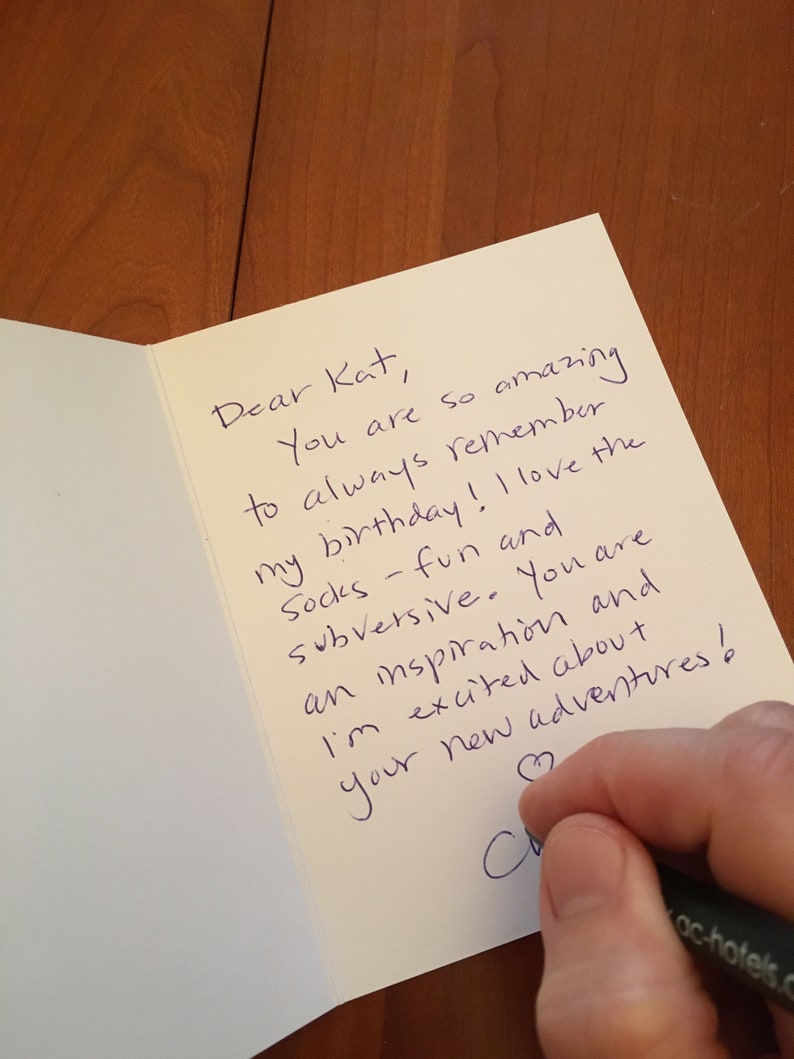 Dear Kat,
You are so amazing
to always remember
my birthday! I love the
socks – fun and
subversive. You are
an inspiration and
I'm excited about
your new adventures!
♡
ac-hotels.c